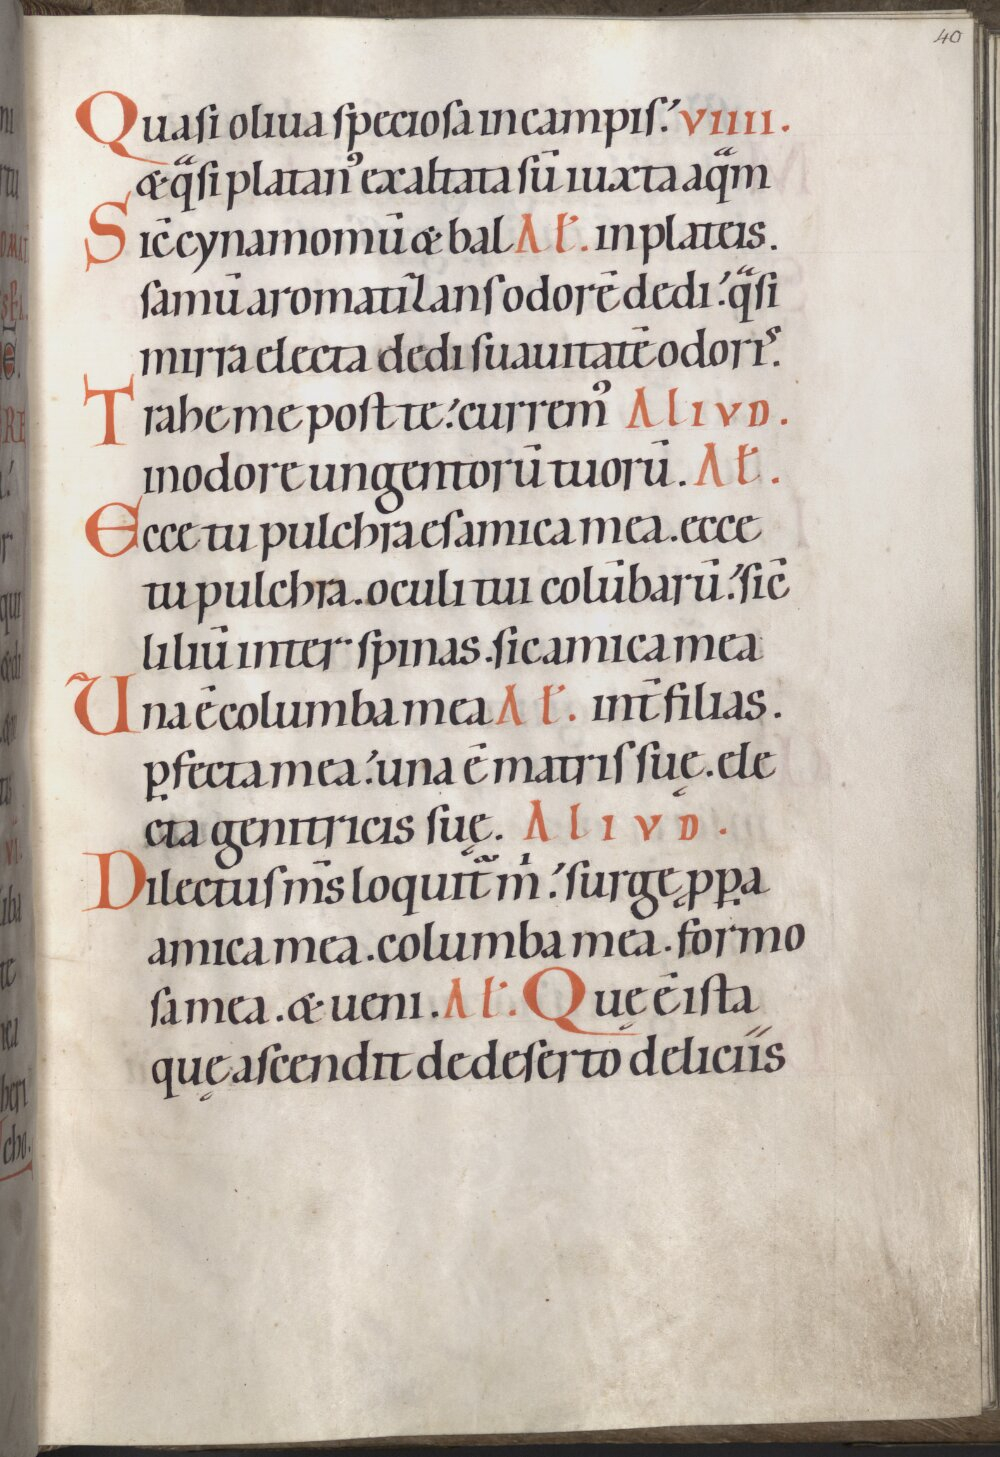 40
Quasi oliua speciosa in campis. VIIII.
& qͣsi platanꝰ exaltata sū iuxta aqͣm
Sic̄ cynamomū & bal AŁ. in plateis.
samū aromatiz̄ans odorē dedi. qͣsi
mirra electa dedi suauitatē odoris.
Trahe me post te. curremꝰ ALIUD.
in odore ungentorū tuorū. AŁ.
Ecce tu pulchra es amica mea. ecce
tu pulchra. oculi tui colūbarū. sic̄
liliū inter spinas. sic amica mea
Una ē columba mea AŁ. int̄ filias.
ꝑfecta mea. una ē matris suę. ele
cta genitricis suę. ALIUD.
Dilectus ms̄ loquit̄ m̍. surge ꝓꝑa
amica mea. columba mea. formo
sa mea. & ueni. AŁ. Quę ē ista
quę ascendit de deserto deliciis